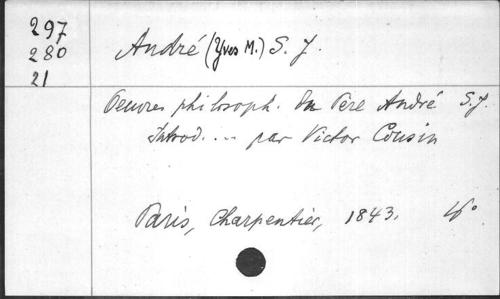 297
280
21
André (Yves M.) S. J.
Oeuvres philosoph. Du Père André S. J.
Introd. ... par Victor Cousin
Paris, Charpentier, 1843.